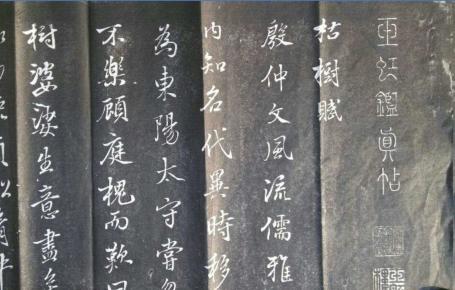 玉虹鑑真帖
枯樹賦
殷仲文風流儒雅
内知名代異時移
為東陽太守嘗忽
不樂顧庭槐而歎曰
樹婆娑生意盡矣
松青牛